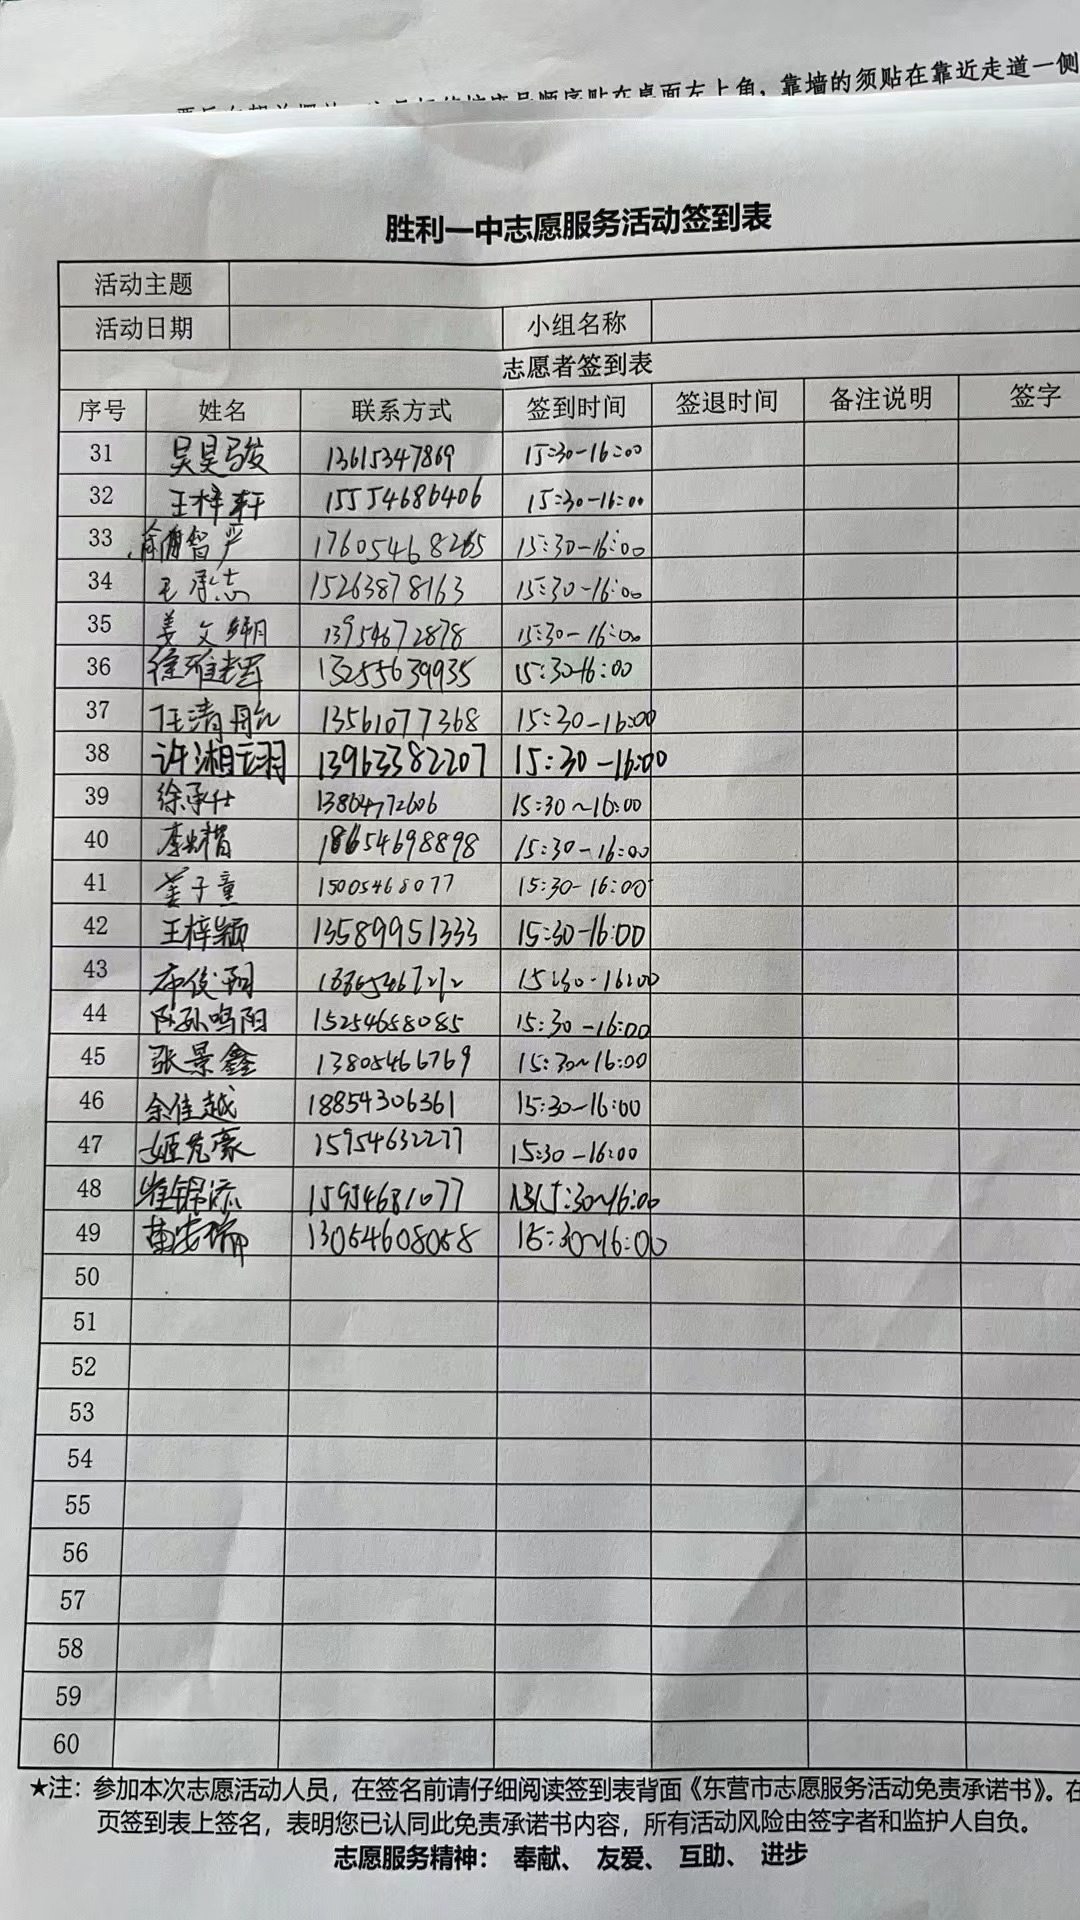 桌面左上角，靠墙的须贴在靠近走道一侧
胜利一中志愿服务活动签到表
活动主题
活动日期 小组名称
志愿者签到表
序号 姓名 联系方式 签到时间 签退时间 备注说明 签字
31 吴昊骏 13615347869 15:30-16:00
32 王梓轩 15554686406 15:30-16:00
33 15:30-16:00
34 王承志 15263878163 15:30-16:00
35 姜文翔 13954672878 15:30-16:00
36 13255639935 15:30-16:00
37 任清 13561077368 15:30-16:00
38 许湘云羽 13963382207 15:30-16:00
39 徐承仕 13864772606 15:30~16:00
40 18654698898 15:30-16:00
41 姜子童 15005468077 15:30-16:00
42 王梓颖 13589951333 15:30-16:00
43 15:30-16:00
44 陈孙鸣阳 15254658085 15:30-16:00
45 张景鑫 13805466769 15:30~16:00
46 余佳越 18854306361 15:30-16:00
47 姬茗豪 15954632277 15:30-16:00
48 崔锦添 15954681077 15:30~16:00
49 苗 13054608058 15:30~16:00
50
51
52
53
54
55
56
57
58
59
60
★注：参加本次志愿活动人员，在签名前请仔细阅读签到表背面《东营市志愿服务活动免责承诺书》。在
页签到表上签名，表明您已认同此免责承诺书内容，所有活动风险由签字者和监护人自负。
志愿服务精神：奉献、友爱、互助、进步